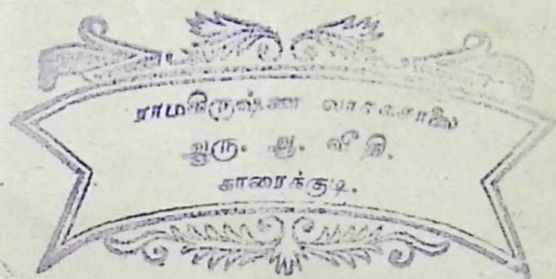 ராமகிருஷ்ண வாசகசாலை
ஆரு. ஆ. வீதி.
காரைக்குடி.